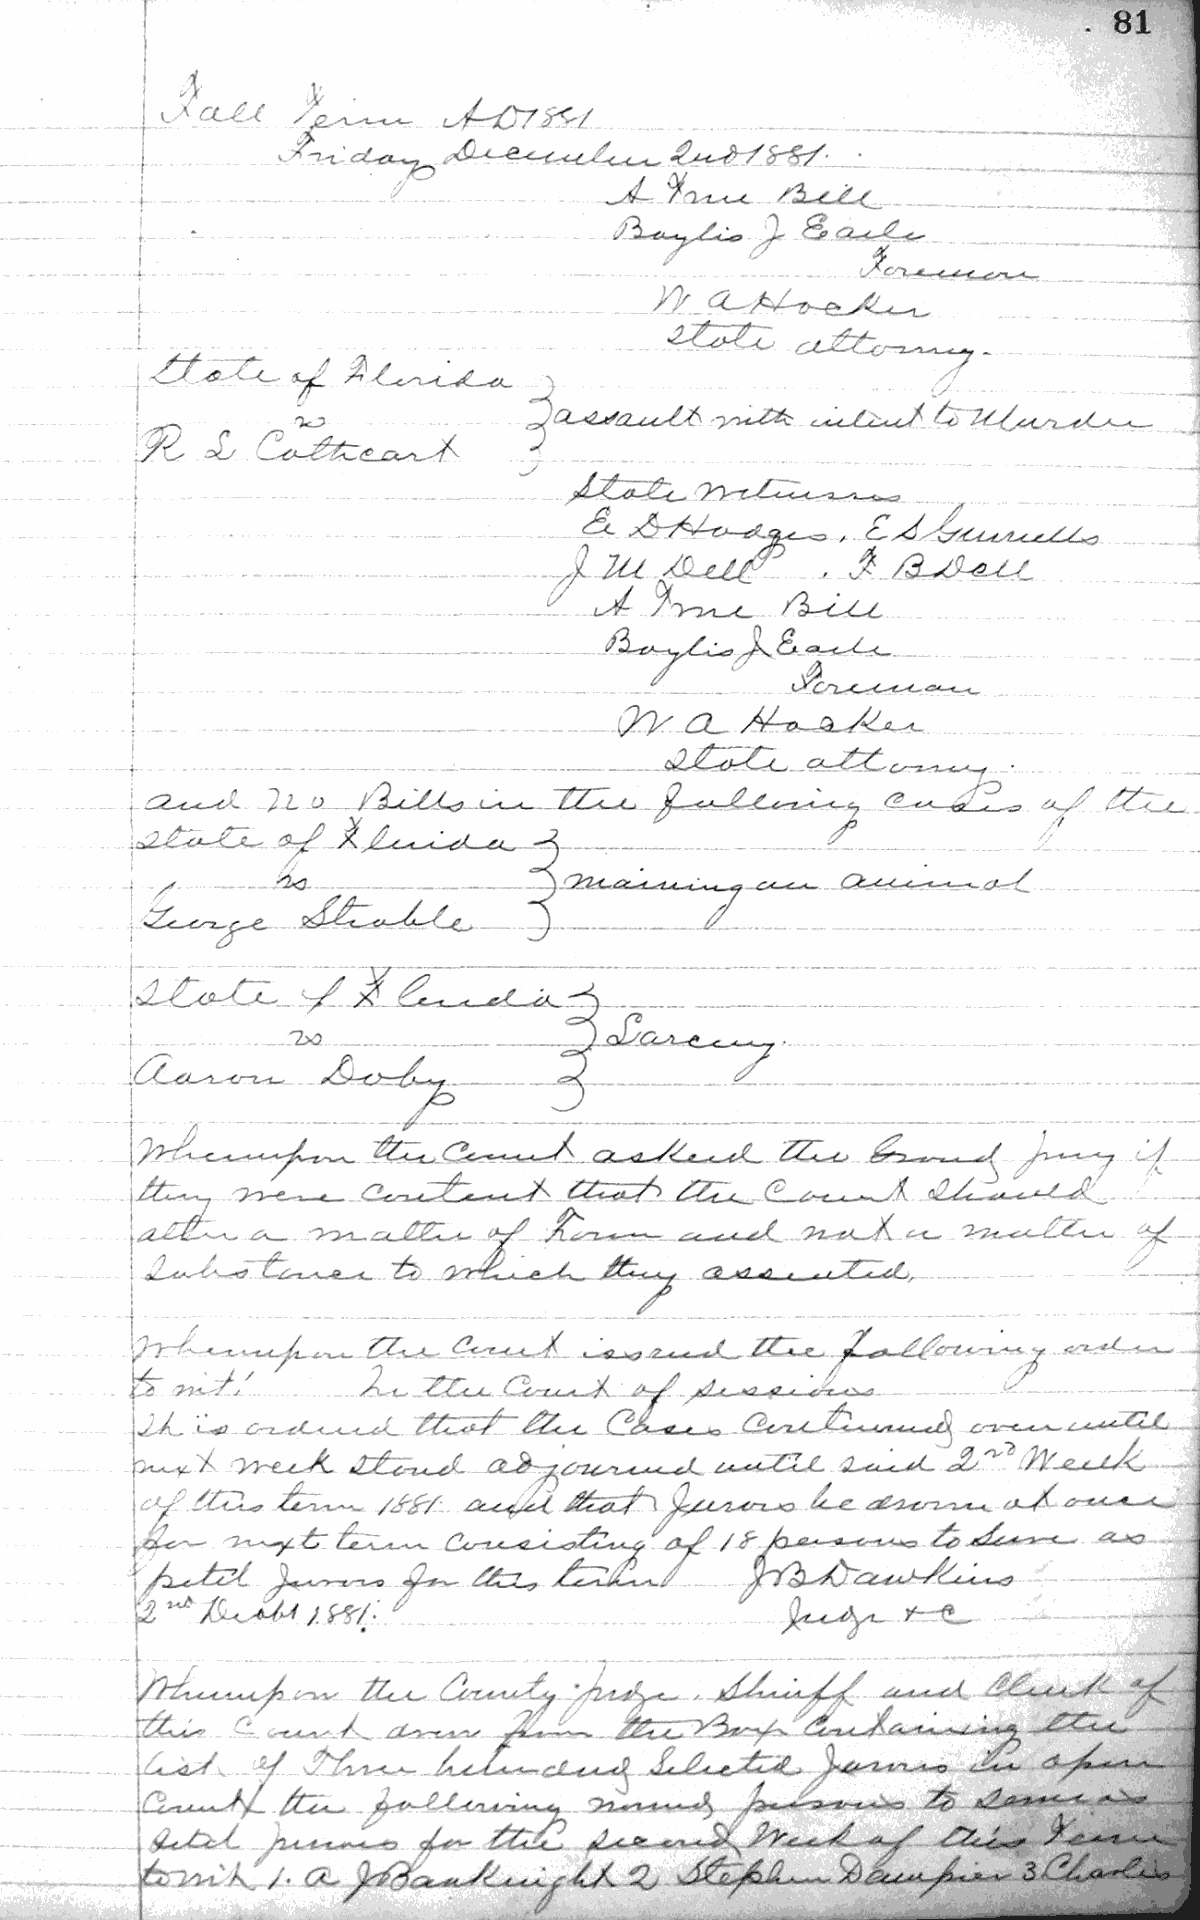 81
Fall Term AD 1881
Friday December 2nd 1881.
A True Bill
Baylis J Earle
Foreman
W A Hocker
State attorney.
State of Florida
vs
assault with intent to Murder
R L Cathcart
State Witnesses
E D Hodges, E S
J M Dell , F B Dell
A True Bill
Baylis J Earle
Foreman
W A Hocker
State attorney.
and no Bills in the following cases of the
State of Florida
vs
maiming an animal
George Stroble
State of Florida
vs
Larceny.
Aaron Doby
Whereupon the Court asked the Grand jury if
they were content that the Court should
alter a matter of Form and not a matter of
Substance to which they assented.
Whereupon the Court issued the following order
to wit! In the Court of sessions
It is ordered that the Cases Continued over until
next week stand adjourned until said 2nd Week
of this term 1881 and that Jurors be drawn at once
for next term consisting of 18 persons to Serve as
petit Jurors for this term J B Dawkins
2nd 1881. Judge &c
Whereupon the County judge, Sheriff and Clerk of
this Court drew from the Box Containing the
list of Three hundred Selected Jurors in open
Court the following named persons to serve as
petit jurors for the second Week of this Term
to wit 1. A J Banknight 2 Stephen Dampier 3 Charles